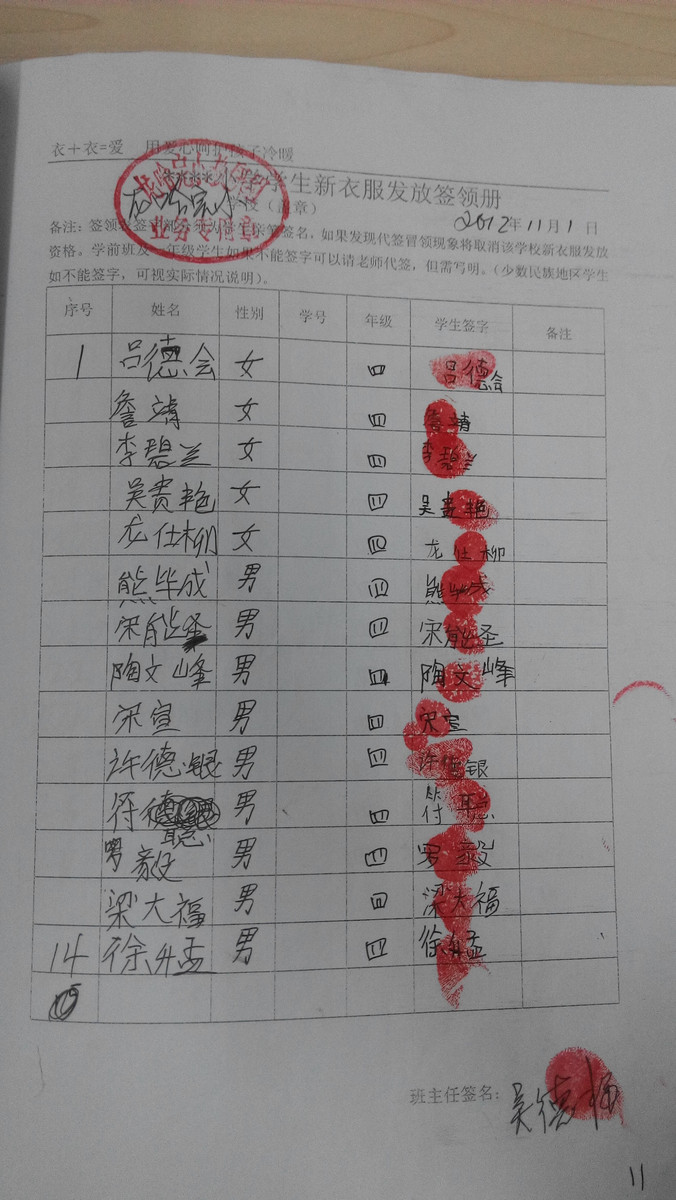 衣+衣=爱 用爱心向护孩子冷暖
学生新衣服发放签领册
学校（盖章） 2012年11月1日
业务专用章
备注：签领 签名。如果发现代签冒领现象将取消该学校新衣服发放
资格。学前班及一年级学生如果不能签字可以请老师代签，但需写明。（少数民族地区学生
如不能签字，可视实际情况说明）。
序号 姓名 性别 学号 年级 学生签字 备注
1 吕德会 女 四 吕德会
詹靖 女 四 詹靖
李碧兰 女 四 李碧兰
吴贵艳 女 四 吴贵艳
龙仕柳 女 四 龙仕柳
熊毕成 男 四 熊毕成
宋能圣 男 四 宋能圣
陶文峰 男 四 陶文峰
宋宣 男 四 宋宣
许德银 男 四 许德银
符聪 男 四 符聪
罗毅 男 四 罗毅
梁大福 男 四 梁大福
14 徐孟 男 四 徐孟
15
班主任签名： 吴德
11